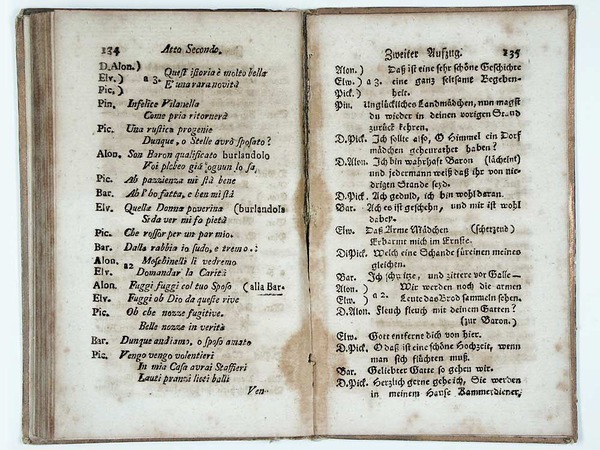 134 Atto Secondo.
D. Alon. )
Elv. ) a 3. Quest' istoria è molto bella
Pic. ) E' una rara novità
Pin. Infelice Vilanella
Come pria ritornerà
Pic. Una rustica progenie
Dunque, o Stelle avrò sposato?
Alon. Son Baron qualificato burlandolo
Voi plebeo già ognun lo sa,
Pic. Ah pazzienza mi stà bene
Bar. Ah l'ho fatta, e ben mi stà
Elv. Quella Donna poverina (burlandola
Si da ver mi fa pietà
Pic. Che rossor per un par mio.
Bar. Dalla rabbia io sudo, e tremo.:
Alon. a2 Moschinelli li vedremo
Elv. Domandar la Carità
Alon. Fuggi fuggi col tuo Sposo (alla Bar.
Elv. Fuggi ob Dio da queste rive
Pic. Oh che nozze fugitive.
Belle nozze in verità
Bar. Dunque andiamo, o sposo amato
Pic. Vengo vengo volentieri
In mia Casa avrai Staffieri
Lauti pranzi lieti balli
Ven-
Zweiter Aufzug. 135
Alon. ) Daß ist eine sehr schöne Geschichte
Elw. ) a 3. eine ganz seltsame Begeben-
Pick. ) heit.
Pin. Unglückliches Landmädchen, nun magst
du wieder in deinen vorigen Stand
zurück kehren.
D.Pick. Ich sollte also, O Himmel ein Dorf
mädchen geheurathet haben?
D.Alon. Ich bin wahrhaft Baron (lächelnt)
und jedermann weiß daß ihr von nie-
drigen Stande seyd.
D.Pick. Ach geduld, ich bin wohl daran.
Bar. Ach es ist geschehn, und mir ist wohl
daher.
Elw. Das Arme Mädchen (scherzend)
Erbarmt mich im Ernste.
D.Pick. Welch eine Schande für einen meines
gleichen.
Bar. Ich schwitze, und zittere vor Galle—
Alon. ) a 2. Wir werden noch die armen
Elw. ) Leute das Brod sammeln sehen.
D.Alon. Fleuch fleuch mit deinem Gatten?
(zur Baron.)
Elw. Gott entferne dich von hier.
D.Pick. O daß ist eine schöne Hochzeit, wenn
man sich flüchten muß.
Bar. Geliebter Gatte so gehen wir.
D.Pick. Herzlich gerne gehe ich, Sie werden
in meinem Hause Kammerdiener,